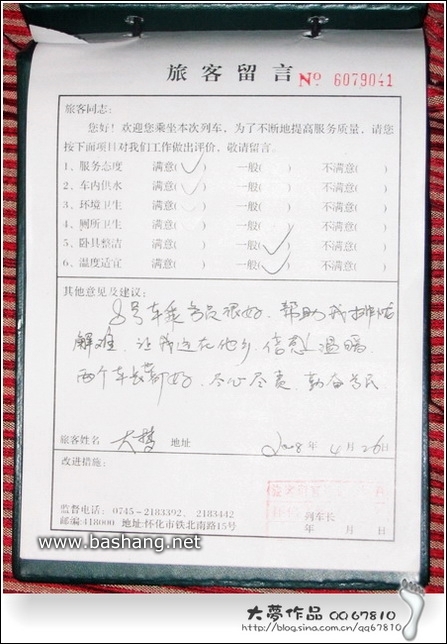 旅客留言 No 6079041
旅客同志:
您好!欢迎您乘坐本次列车,为了不断地提高服务质量,请您
按下面项目对我们工作做出评价,敬请留言。
1、服务态度 满意(✓) 一般( ) 不满意( )
2、车内供水 满意(✓) 一般( ) 不满意( )
3、环境卫生 满意(✓) 一般( ) 不满意( )
4、厕所卫生 满意( ) 一般( ) 不满意( )
5、卧具整洁 满意( ) 一般(✓) 不满意( )
6、温度适宜 满意( ) 一般(✓) 不满意( )
其他意见及建议:
8号车乘务员很好、帮助我排忧
解难、让我远在他乡、倍感温暖、
两个车长都好、尽心尽责、勤奋为民
旅客姓名 大梦 地址 2008年4月26日
改进措施:
监督电话:0745-2183392、2183442
邮编:418000 地址:怀化市铁北南路15号
列车长
年 月 日
www.bashang.net
大夢作品 QQ67810
http://blog.sina.com.cn/qq67810